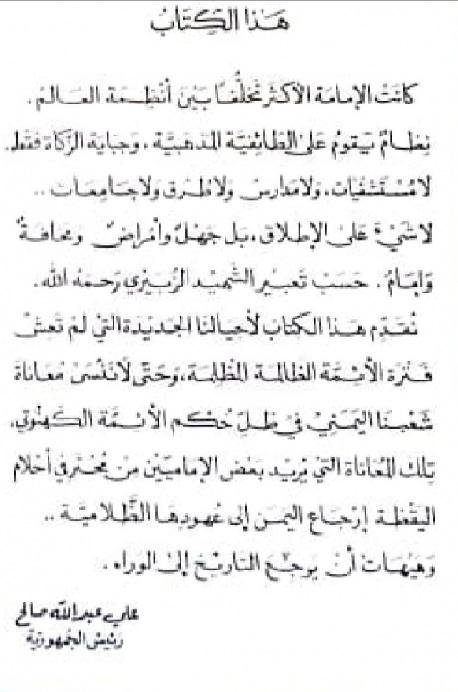 هَذا الكِتَابُ
كانَتْ الإمامَة الأكثَر تَخلُّفًا بَيْنَ أنظِمَة العَالَم .
نِظامٌ يَقومُ عَلى الطَائِفيَّة المَذهَبيَّة ، وَجبَايَة الزَكَاة فَقَط.
لامُسْتَشْفَيَات، وَلامَدَارسَ وَلاطُرق وَلاجَامِعَات ..
لاشَيْءَ عَلى الإطلَاق ، بَل جَهْلٌ وَأمْراضٌ وَمَجَاعَةٌ
وَإمَامٌ . حَسَبَ تَعبير الشَّهيد الزُبَيري رَحمَهُ الله.
نُقَدِّم هَذا الكتاب لأجيالنا الجَديدَة التي لَم تَعِشْ
فَتْرَة الأئِمَّة الظَالمَة المُظْلِمَة ، وَحَتَّى لَانَنْسَىَ مُعَانَاة
شَعْبنَا اليَمَنيْ في ظلِّ حُكْم الأئِمَّة الكَهَنُوتي،
تِلكَ المُعَانَاة التي يُريد بَعْض الإماميّينَ مِنْ مُحْتَرفي أحْلام
اليَقْظَة إرْجَاعَ اليَمن إلى عُهُودِهَا الظَّلاميَّة ..
وَهَيْهَات أنْ يَرجَعَ التَاريخ إلى الوَرَاء .
علي عبدالله صالح
رئيس الجمهورية